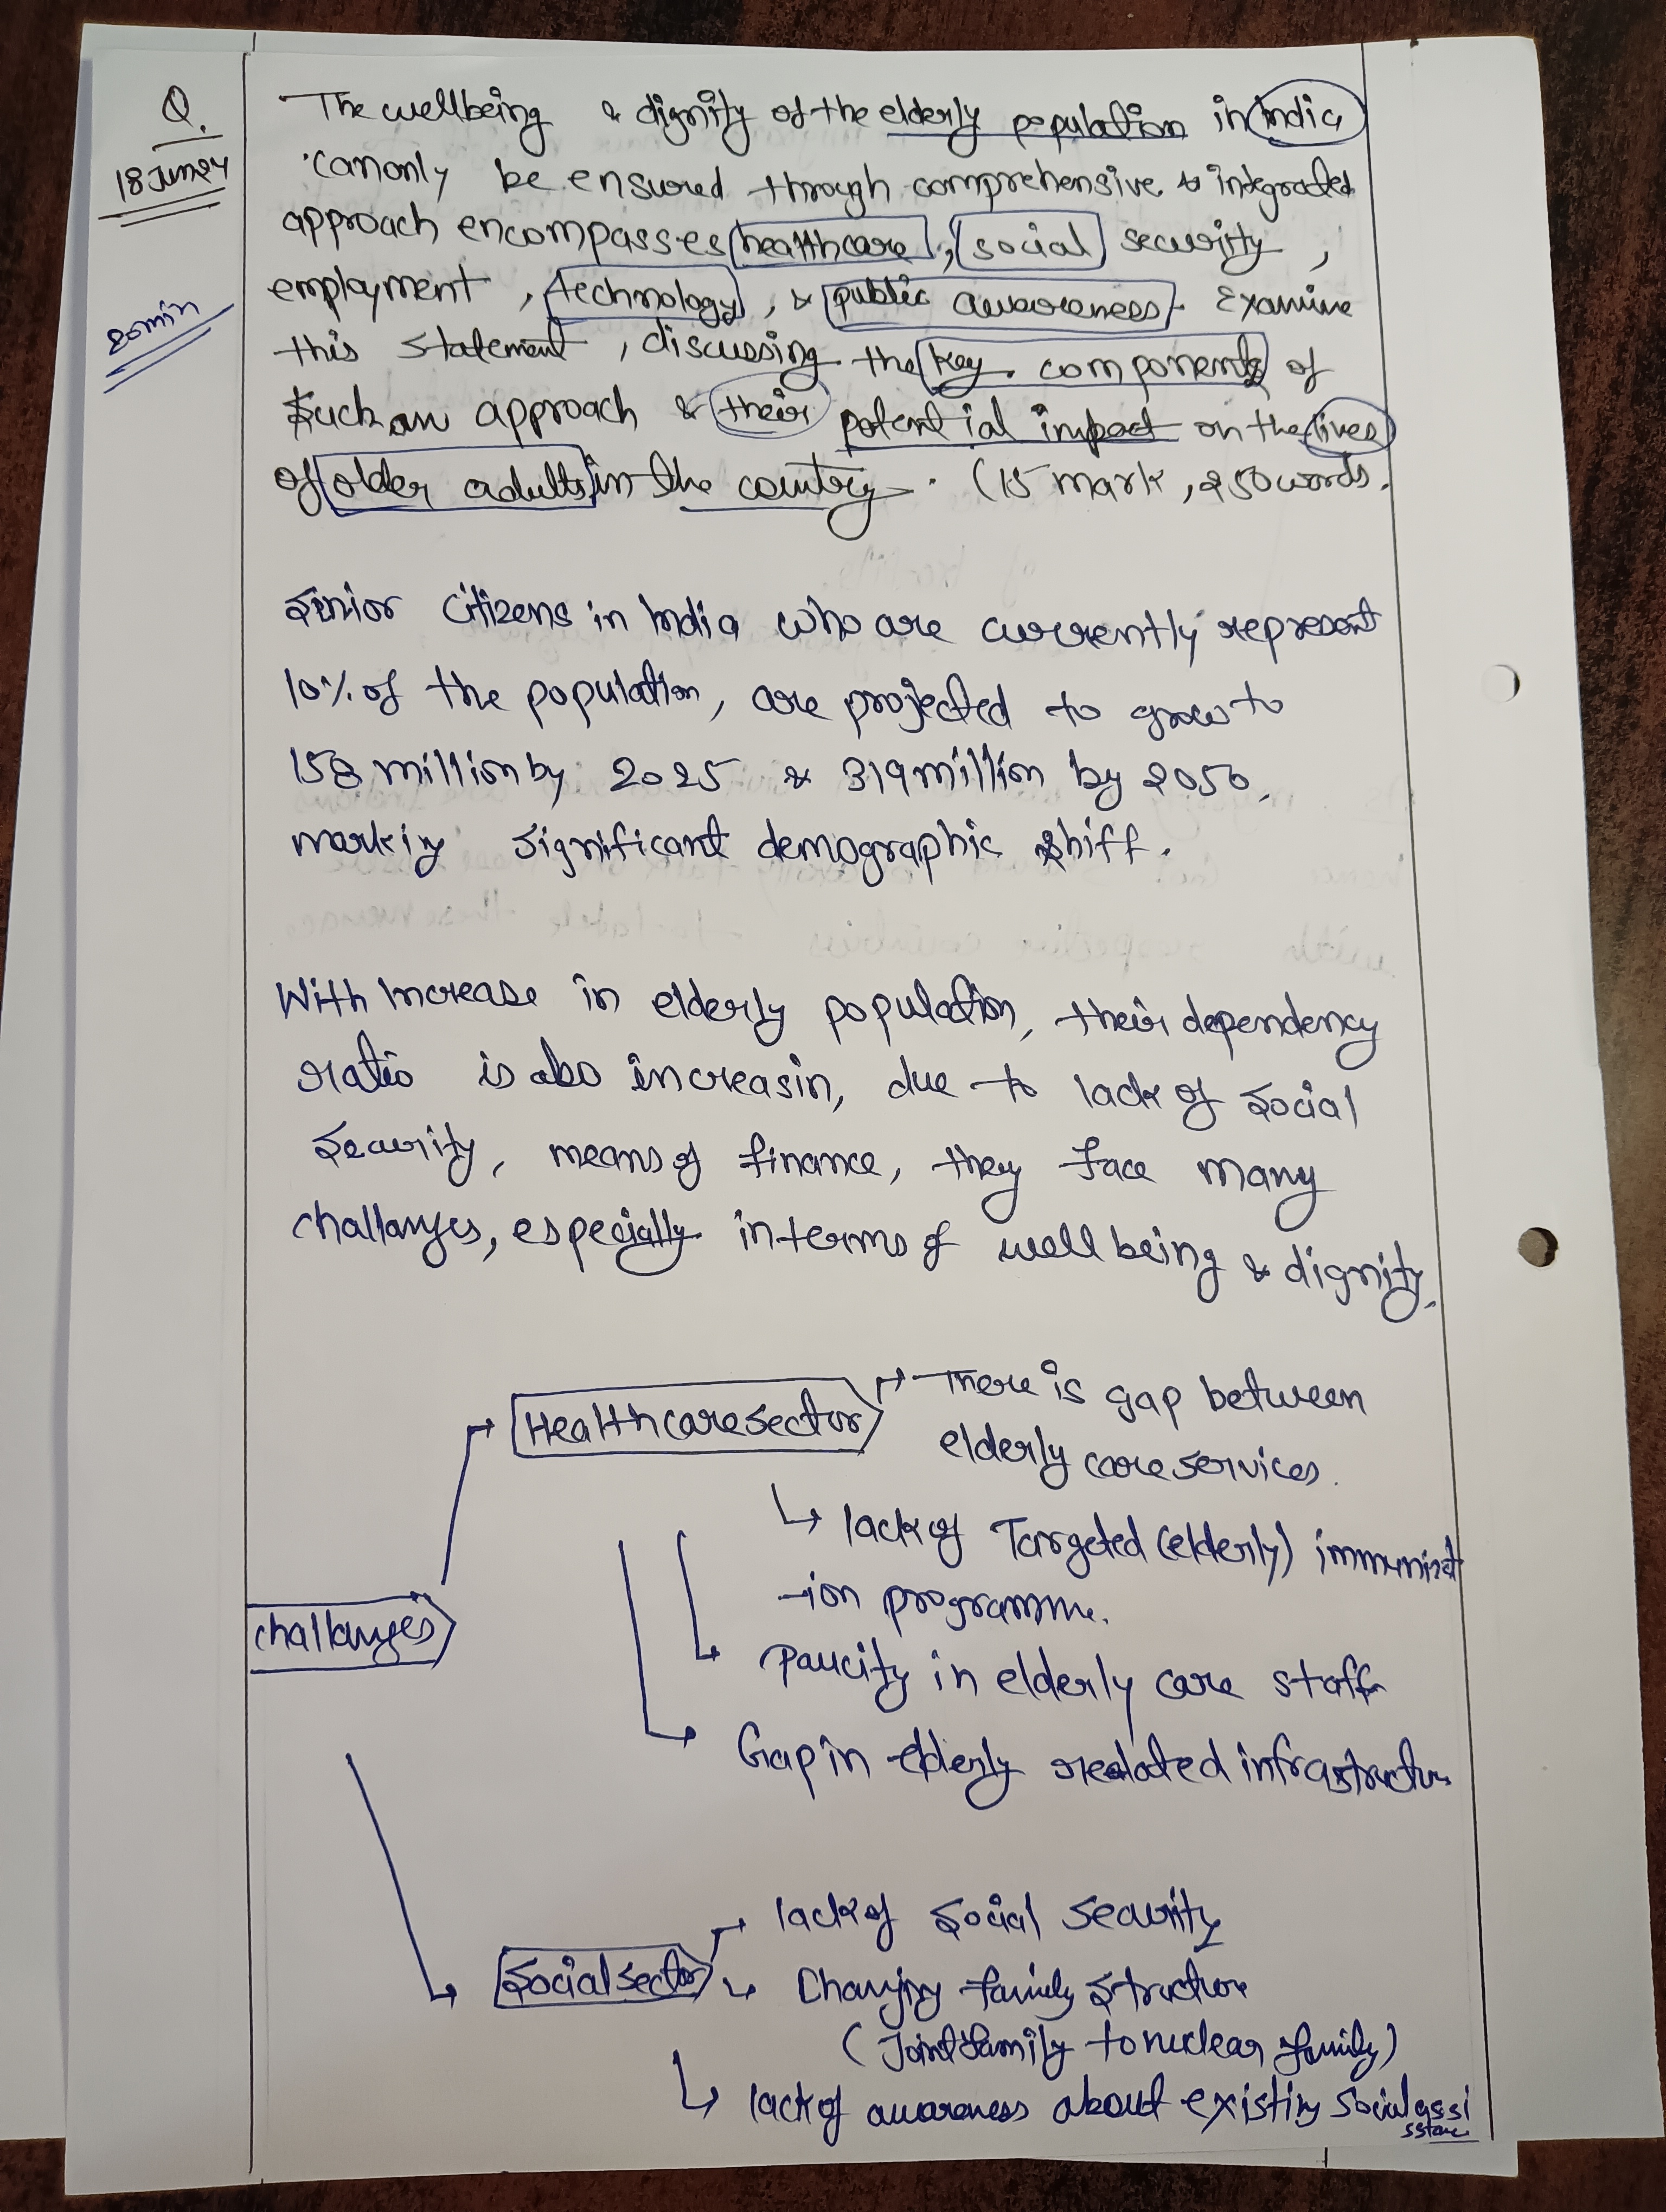 Q.
18 Jun 24
20min
The wellbeing & dignity of the elderly population in India
can only be ensured through comprehensive & integrated
approach encompasses healthcare, social security,
employment, technology, & public awareness. Examine
this statement, discussing the key components of
such an approach & their potential impact on the lives
of older adults in the country. (15 mark, 250 words.
Senior Citizens in India who are currently represent
10% of the population, are projected to grow to
158 million by 2025 & 319 million by 2050,
markiy significant demographic shiff.
With Increase in elderly population, their dependency
ratio is also increasin, due to lack of social
security, means of finance, they face many
challanges, especially in terms of well being & dignity.
Healthcare sector
There is gap between
elderly care services.
lack of Targeted (elderly) immunizat
-ion programme.
challanges
Paucity in elderly care staff
Gap in elderly realated infrastructure
lack of Social Security
Social sector
Changing family structure
(Joint family to nuclear family)
lack of awareness about existing Social assi
sstance